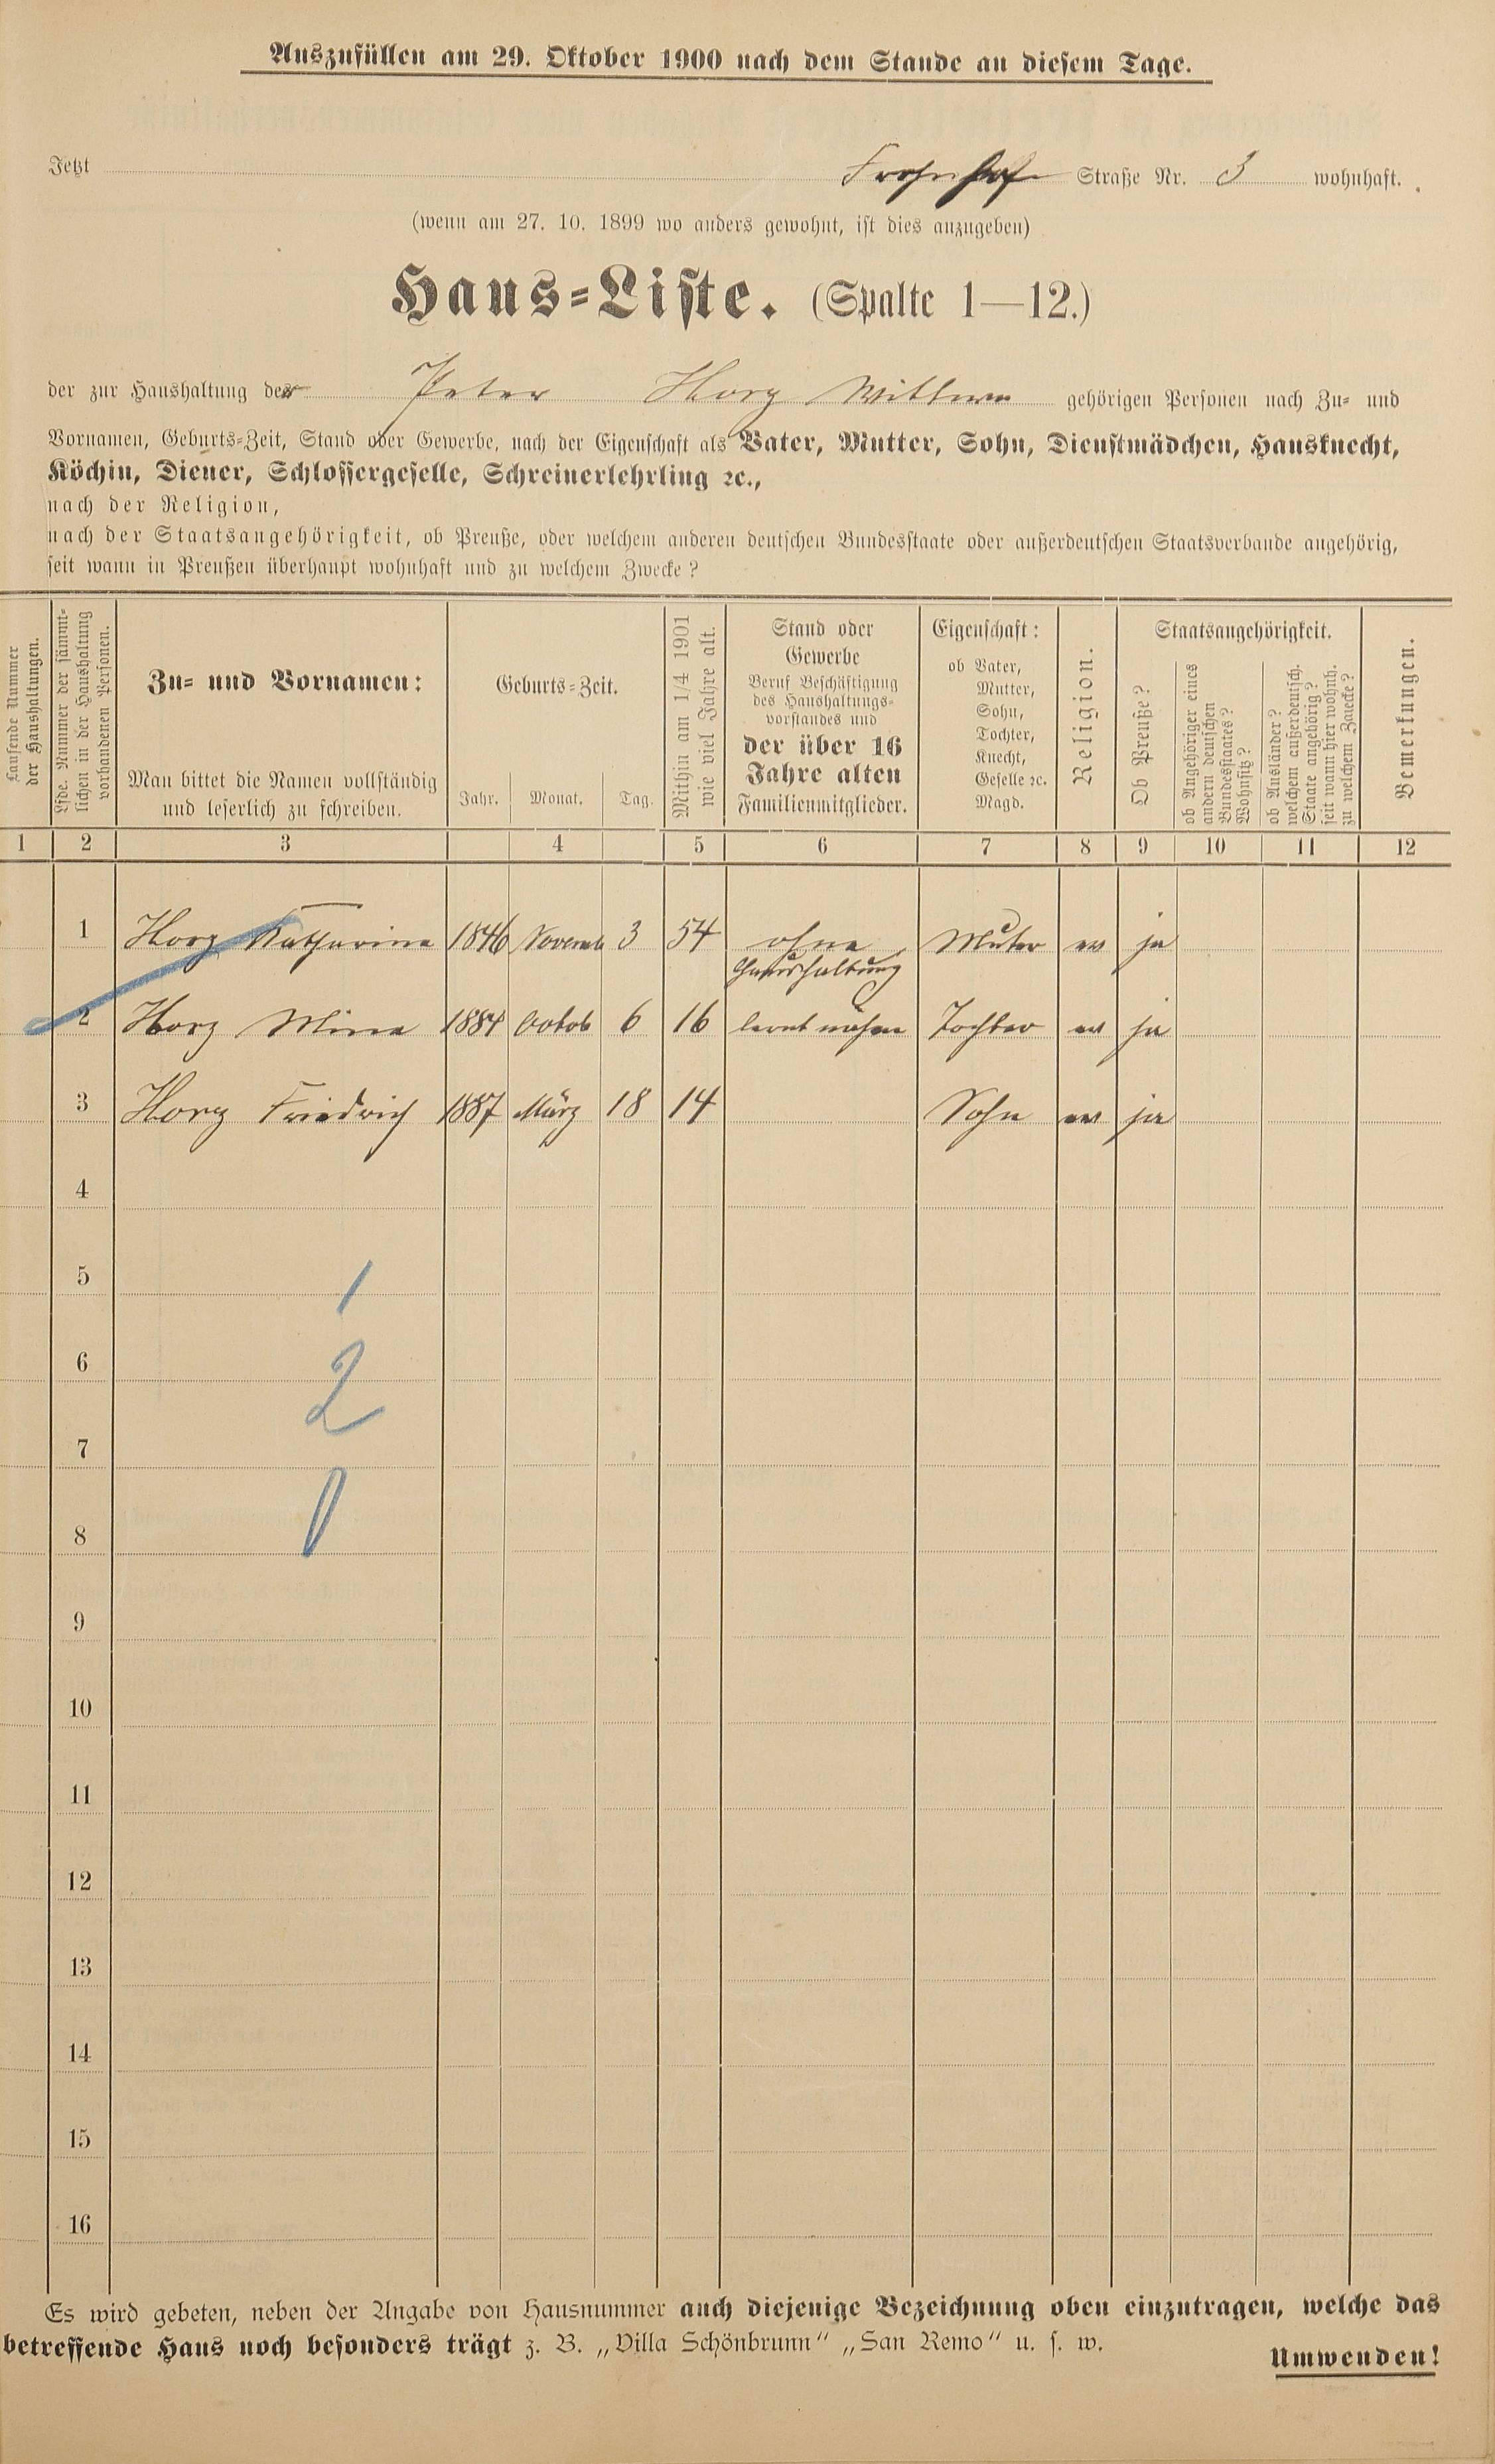 Auszufüllen am 29. Oktober 1900 nach dem Stande an diesem Tage.
Jetzt Frohnhof Straße Nr. 3 wohnhaft.
(wenn am 27. 10. 1899 wo anders gewohnt, ist dies anzugeben)
Haus-Liste. (Spalte 1—12.)
der zur Haushaltung der Peter Horz Wittwe gehörigen Personen nach Zu- und
Vornamen, Geburts-Zeit, Stand oder Gewerbe, nach der Eigenschaft als Vater, Mutter, Sohn, Dienstmädchen, Hausknecht,
Köchin, Diener, Schlossergeselle, Schreinerlehrling ꝛc.,
nach der Religion,
nach der Staatsangehörigkeit, ob Preuße, oder welchem anderen deutschen Bundesstaate oder außerdeutschen Staatsverbande angehörig,
seit wann in Preußen überhaupt wohnhaft und zu welchem Zwecke?
Laufende Nummer
der Haushaltungen.
Lfde. Nummer der sämmt-
lichen in der Haushaltung
vorhandenen Personen.
Zu- und Vornamen:
Man bittet die Namen vollständig
und leserlich zu schreiben.
Geburts-Zeit.
Jahr. Monat. Tag.
Mithin am 1/4 1901
wie viel Jahre alt.
Stand oder
Gewerbe
Beruf Beschäftigung
des Haushaltungs-
vorstandes und
der über 16
Jahre alten
Familienmitglieder.
Eigenschaft:
ob Vater,
Mutter,
Sohn,
Tochter,
Knecht,
Geselle ꝛc.
Magd.
Religion.
Staatsangehörigkeit.
Ob Preuße?
ob Angehöriger eines
andern deutschen
Bundesstaates?
Wohnsitz?
ob Ausländer?
welchem außerdeutsch.
Staate angehörig?
seit wann hier wohnh.
zu welchem Zwecke?
Bemerkungen.
1 2 3 4 5 6 7 8 9 10 11 12
1 Horz Katharina 1846 Novemb 3 54 ohne Muter ev ja
Haushaltung
2 Horz Mina 1884 Octob 6 16 lernt nähen Tochter ev ja
3 Horz Friedrich 1887 März 18 14 Sohn ev ja
4
5
1
6
2
7
8
0
9
10
11
12
13
14
15
16
Es wird gebeten, neben der Angabe von Hausnummer auch diejenige Bezeichnung oben einzutragen, welche das
betreffende Haus noch besonders trägt z. B. „Villa Schönbrunn" „San Remo" u. s. w.
Umwenden!